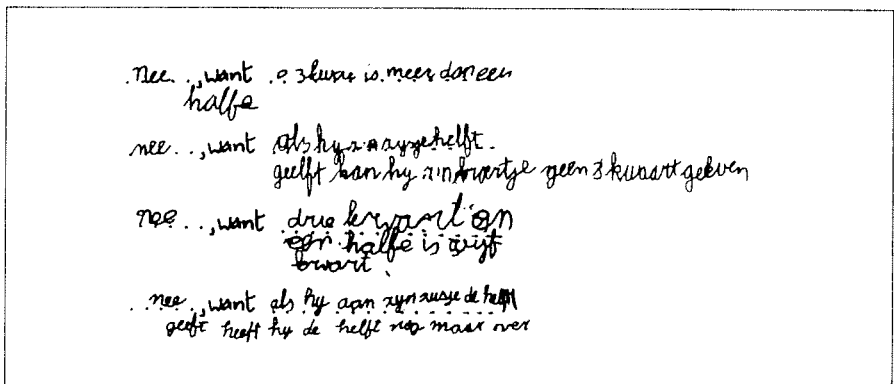 nee.., want 3 kwart is meer dan een
halfe
nee.., want als hy zyn helft
geeft kan hy zyn broertje geen 3 kwart geven
nee.., want drie kwart en
een halfe is vyf
kwart.
nee.., want als hy aan zyn zusje de helft
geeft heeft hy de helft nog maar over